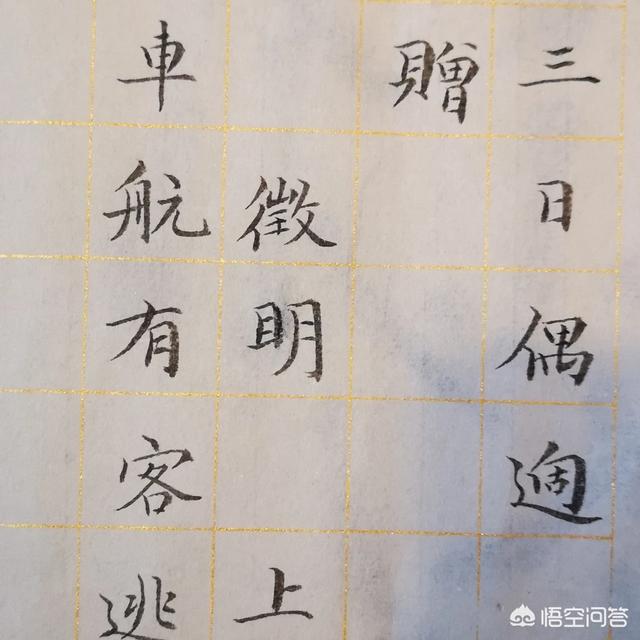 三日偶過
贈
徵明 上
車航有客逃
悟空问答